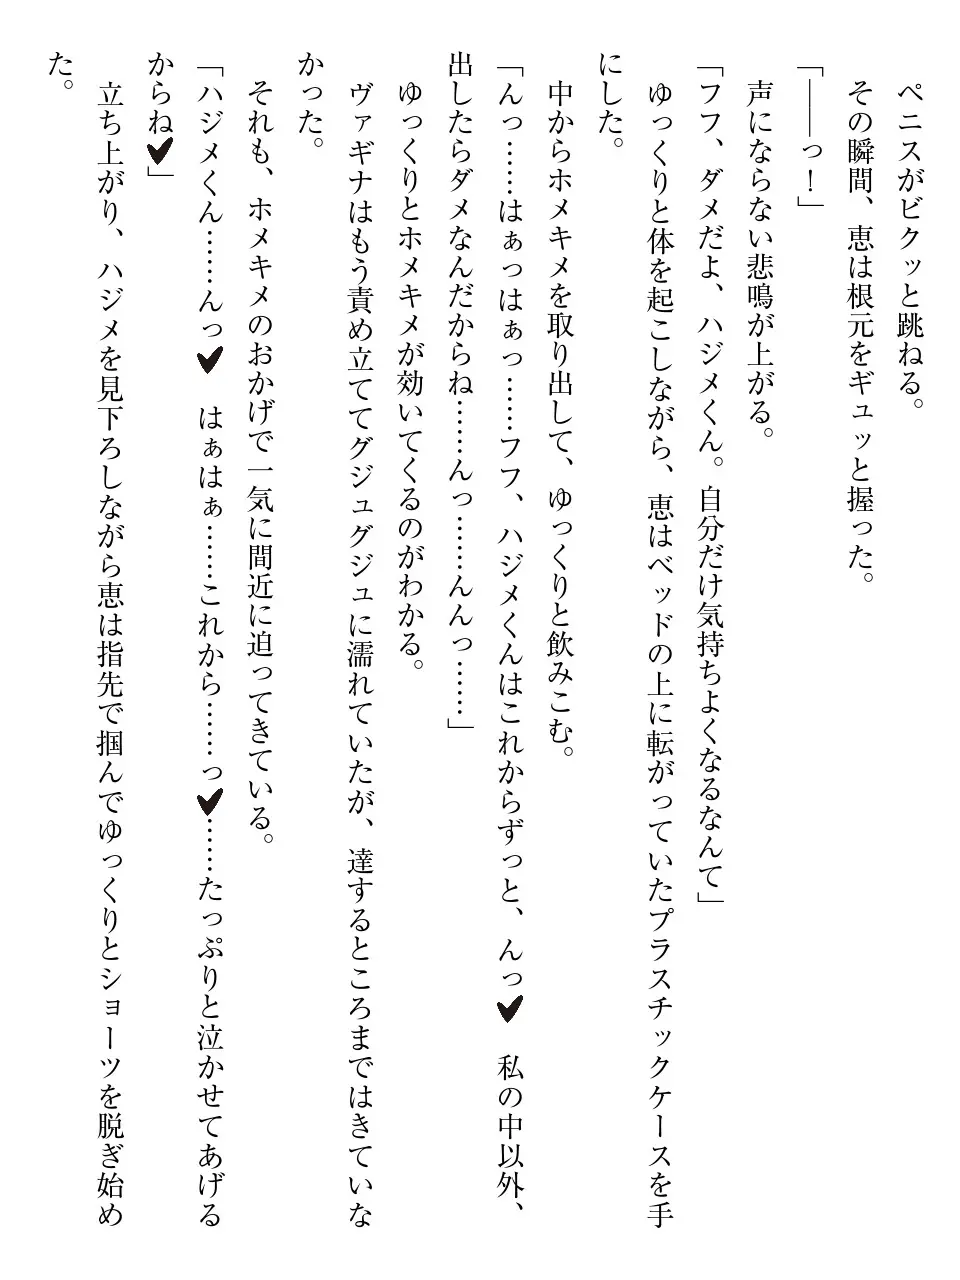 ペニスがビクッと跳ねる。
その瞬間、恵は根元をギュッと握った。
「――っ！」
声にならない悲鳴が上がる。
「フフ、ダメだよ、ハジメくん。自分だけ気持ちよくなるなんて」
ゆっくりと体を起こしながら、恵はベッドの上に転がっていたプラスチックケースを手
にした。
中からホメキメを取り出して、ゆっくりと飲みこむ。
「んっ……はぁっはぁっ……フフ、ハジメくんはこれからずっと、んっ♥　私の中以外、
出したらダメなんだからね……んっ……んんっ……」
ゆっくりとホメキメが効いてくるのがわかる。
ヴァギナはもう責め立ててグジュグジュに濡れていたが、達するところまではきていな
かった。
それも、ホメキメのおかげで一気に間近に迫ってきている。
「ハジメくん……んっ♥　はぁはぁ……これから……っ♥……たっぷりと泣かせてあげる
からね♥」
立ち上がり、ハジメを見下ろしながら恵は指先で掴んでゆっくりとショーツを脱ぎ始め
た。